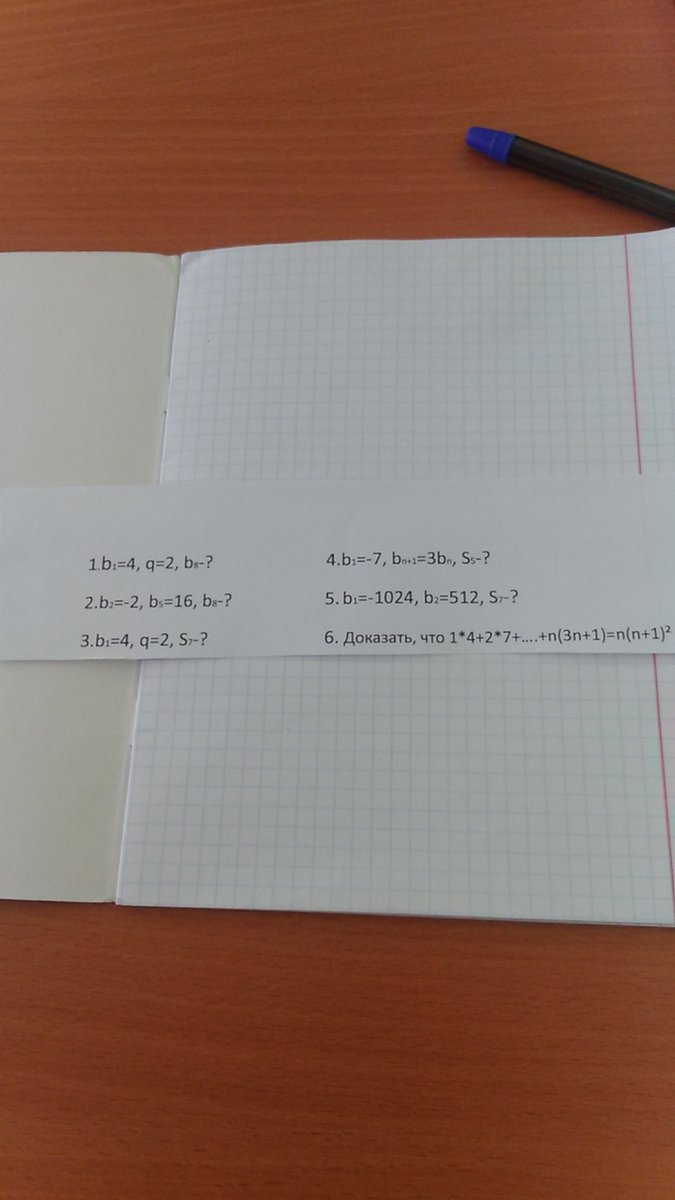 1.b₁=4, q=2, b₈-?
2.b₂=-2, b₅=16, b₈-?
3.b₁=4, q=2, S₇-?
4.b₁=-7, bₙ₊₁=3bₙ, S₅-?
5. b₁=-1024, b₂=512, S₇-?
6. Доказать, что 1*4+2*7+....+n(3n+1)=n(n+1)²